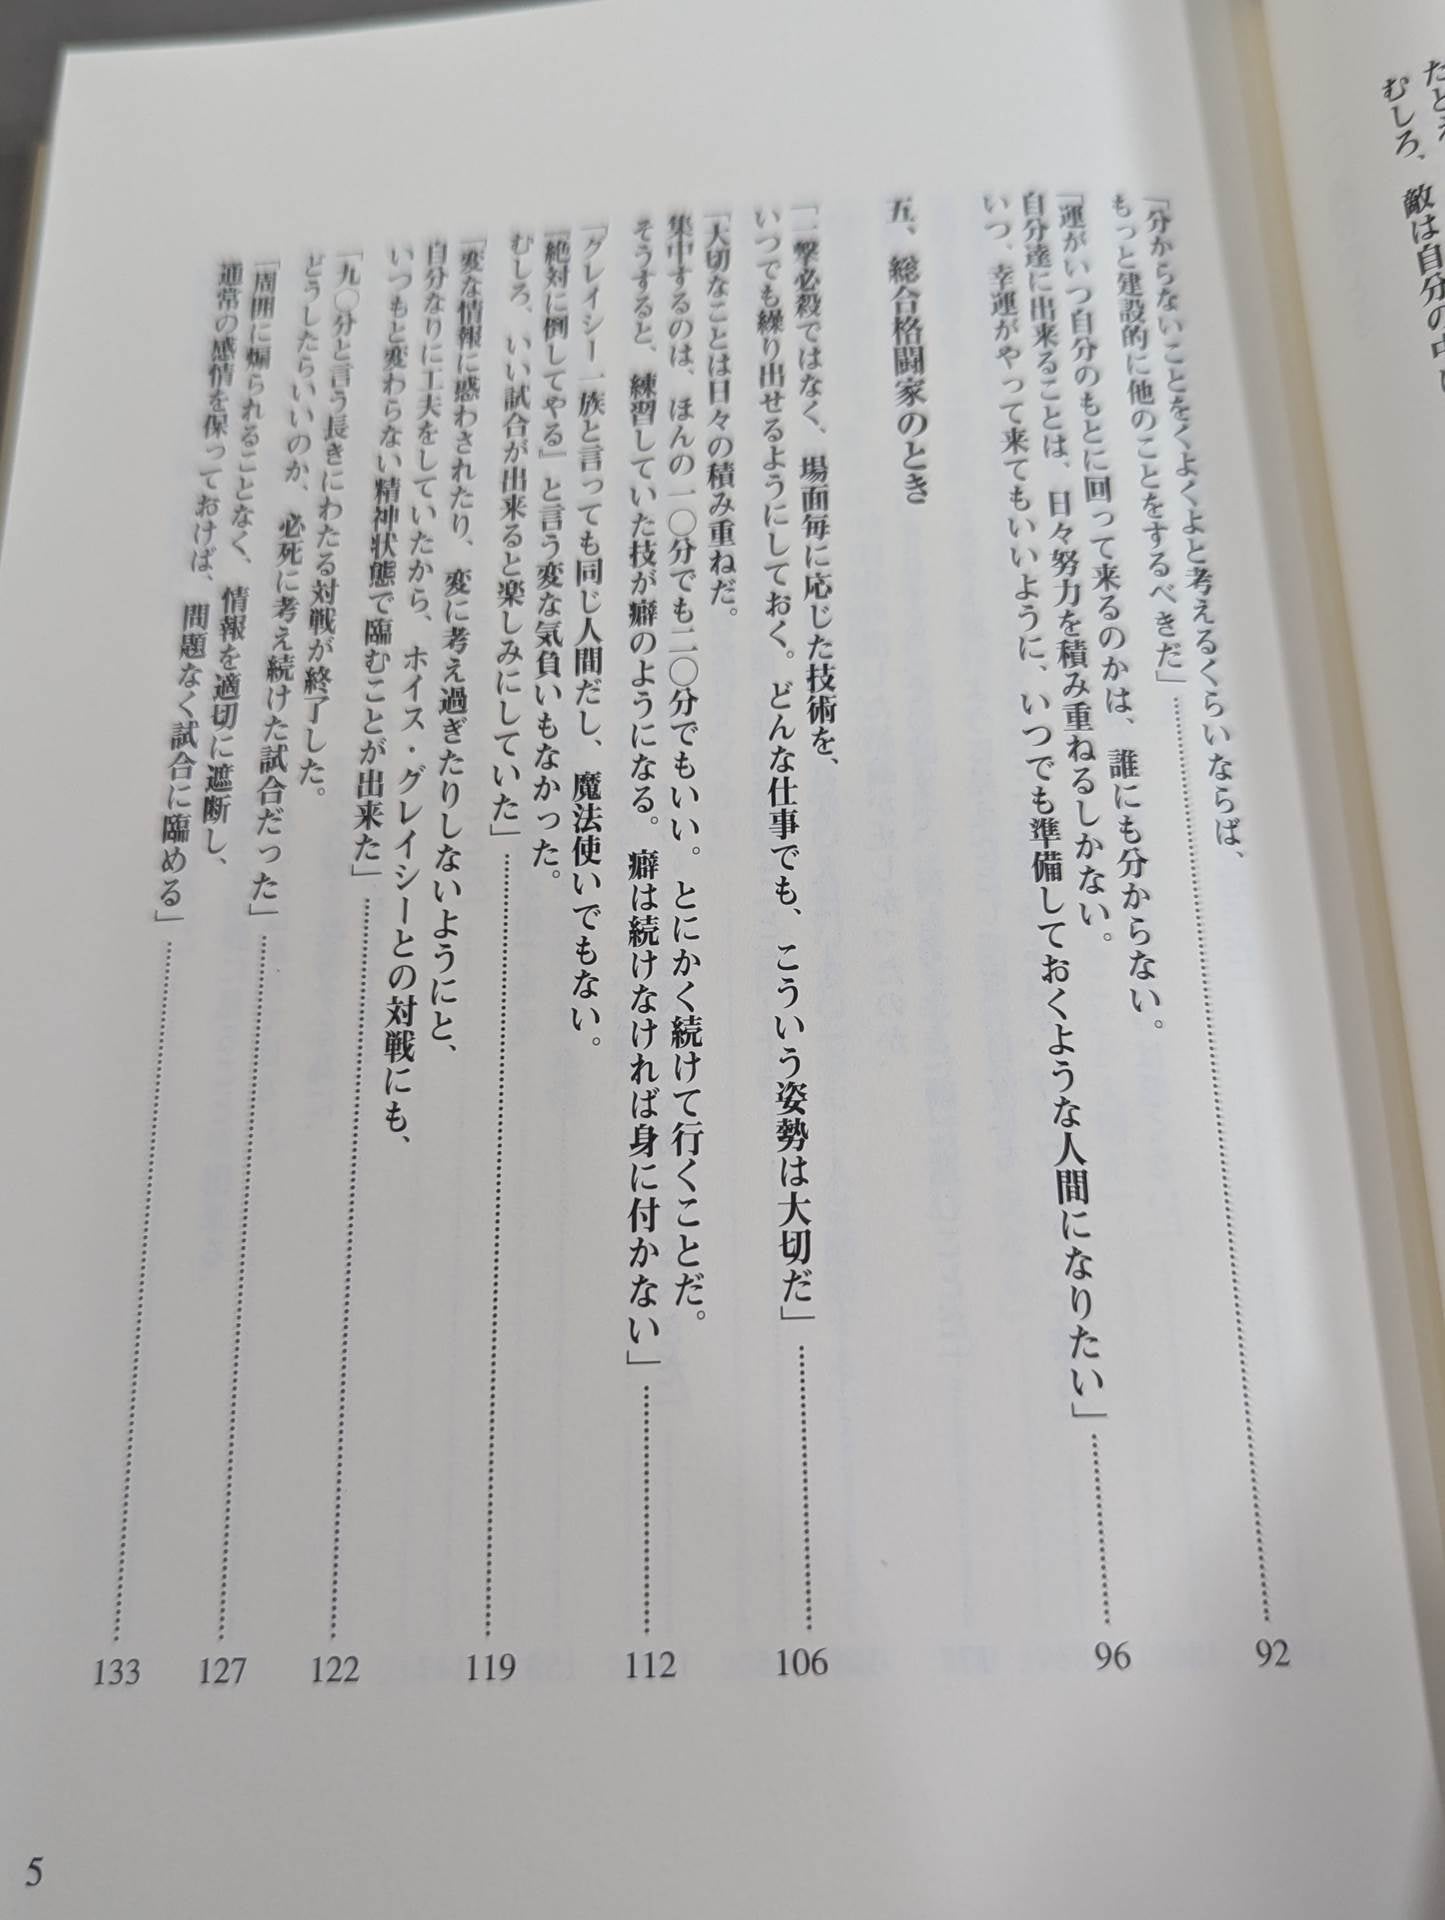 むしろ、敵は自分の中に
「分からないことをくよくよと考えるくらいならば、
もっと建設的に他のことをするべきだ」 92
「運がいつ自分のもとに回って来るのかは、誰にも分からない。
自分達に出来ることは、日々努力を積み重ねるしかない。
いつ、幸運がやって来てもいいように、いつでも準備しておくような人間になりたい」 96
五、総合格闘家のとき
「一撃必殺ではなく、場面毎に応じた技術を、
いつでも繰り出せるようにしておく。どんな仕事でも、こういう姿勢は大切だ」 106
「大切なことは日々の積み重ねだ。
集中するのは、ほんの一〇分でも二〇分でもいい。とにかく続けて行くことだ。
そうすると、練習していた技が癖のようになる。癖は続けなければ身に付かない」 112
「グレイシー一族と言っても同じ人間だし、魔法使いでもない。
『絶対に倒してやる』と言う変な気負いもなかった。
むしろ、いい試合が出来ると楽しみにしていた」 119
「変な情報に惑わされたり、変に考え過ぎたりしないようにと、
自分なりに工夫をしていたから、ホイス・グレイシーとの対戦にも、
いつもと変わらない精神状態で臨むことが出来た」 122
「九〇分と言う長きにわたる対戦が終了した。
どうしたらいいのか、必死に考え続けた試合だった」 127
「周囲に煽られることなく、情報を適切に遮断し、
通常の感情を保っておけば、問題なく試合に臨める」 133
5